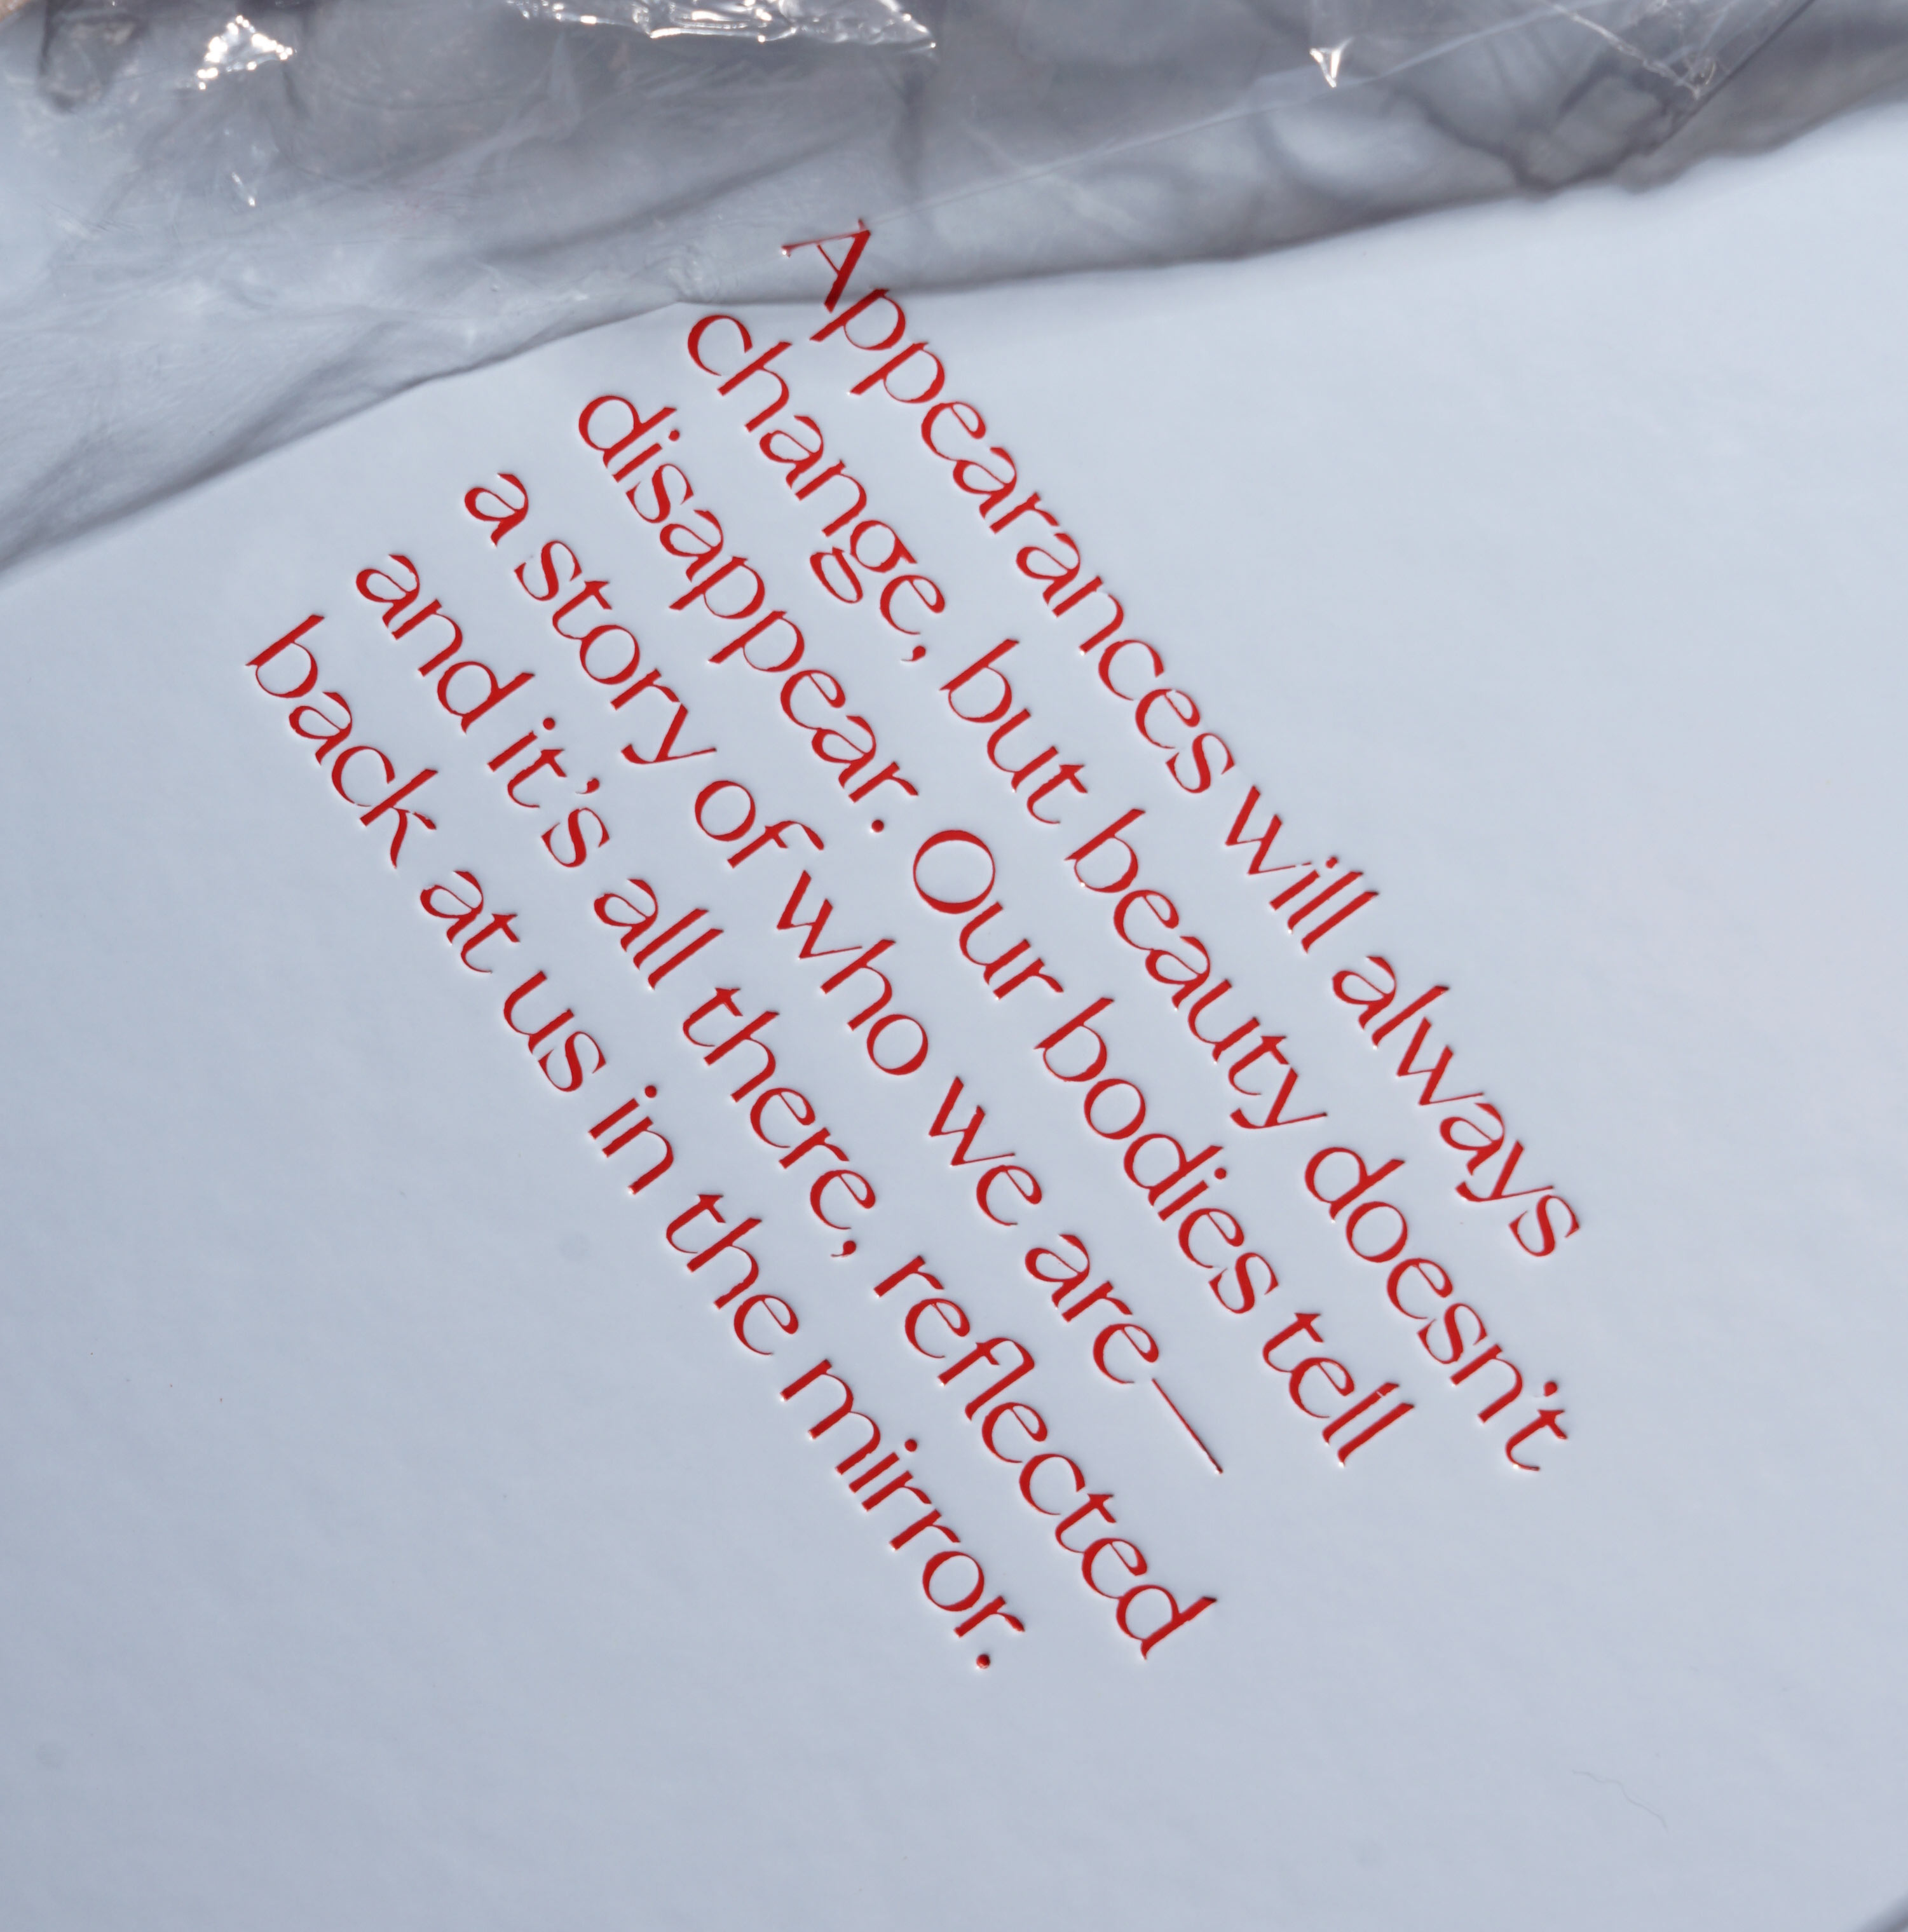 Appearances will always
change, but beauty doesn't
disappear. Our bodies tell
a story of who we are—
and it's all there, reflected
back at us in the mirror.